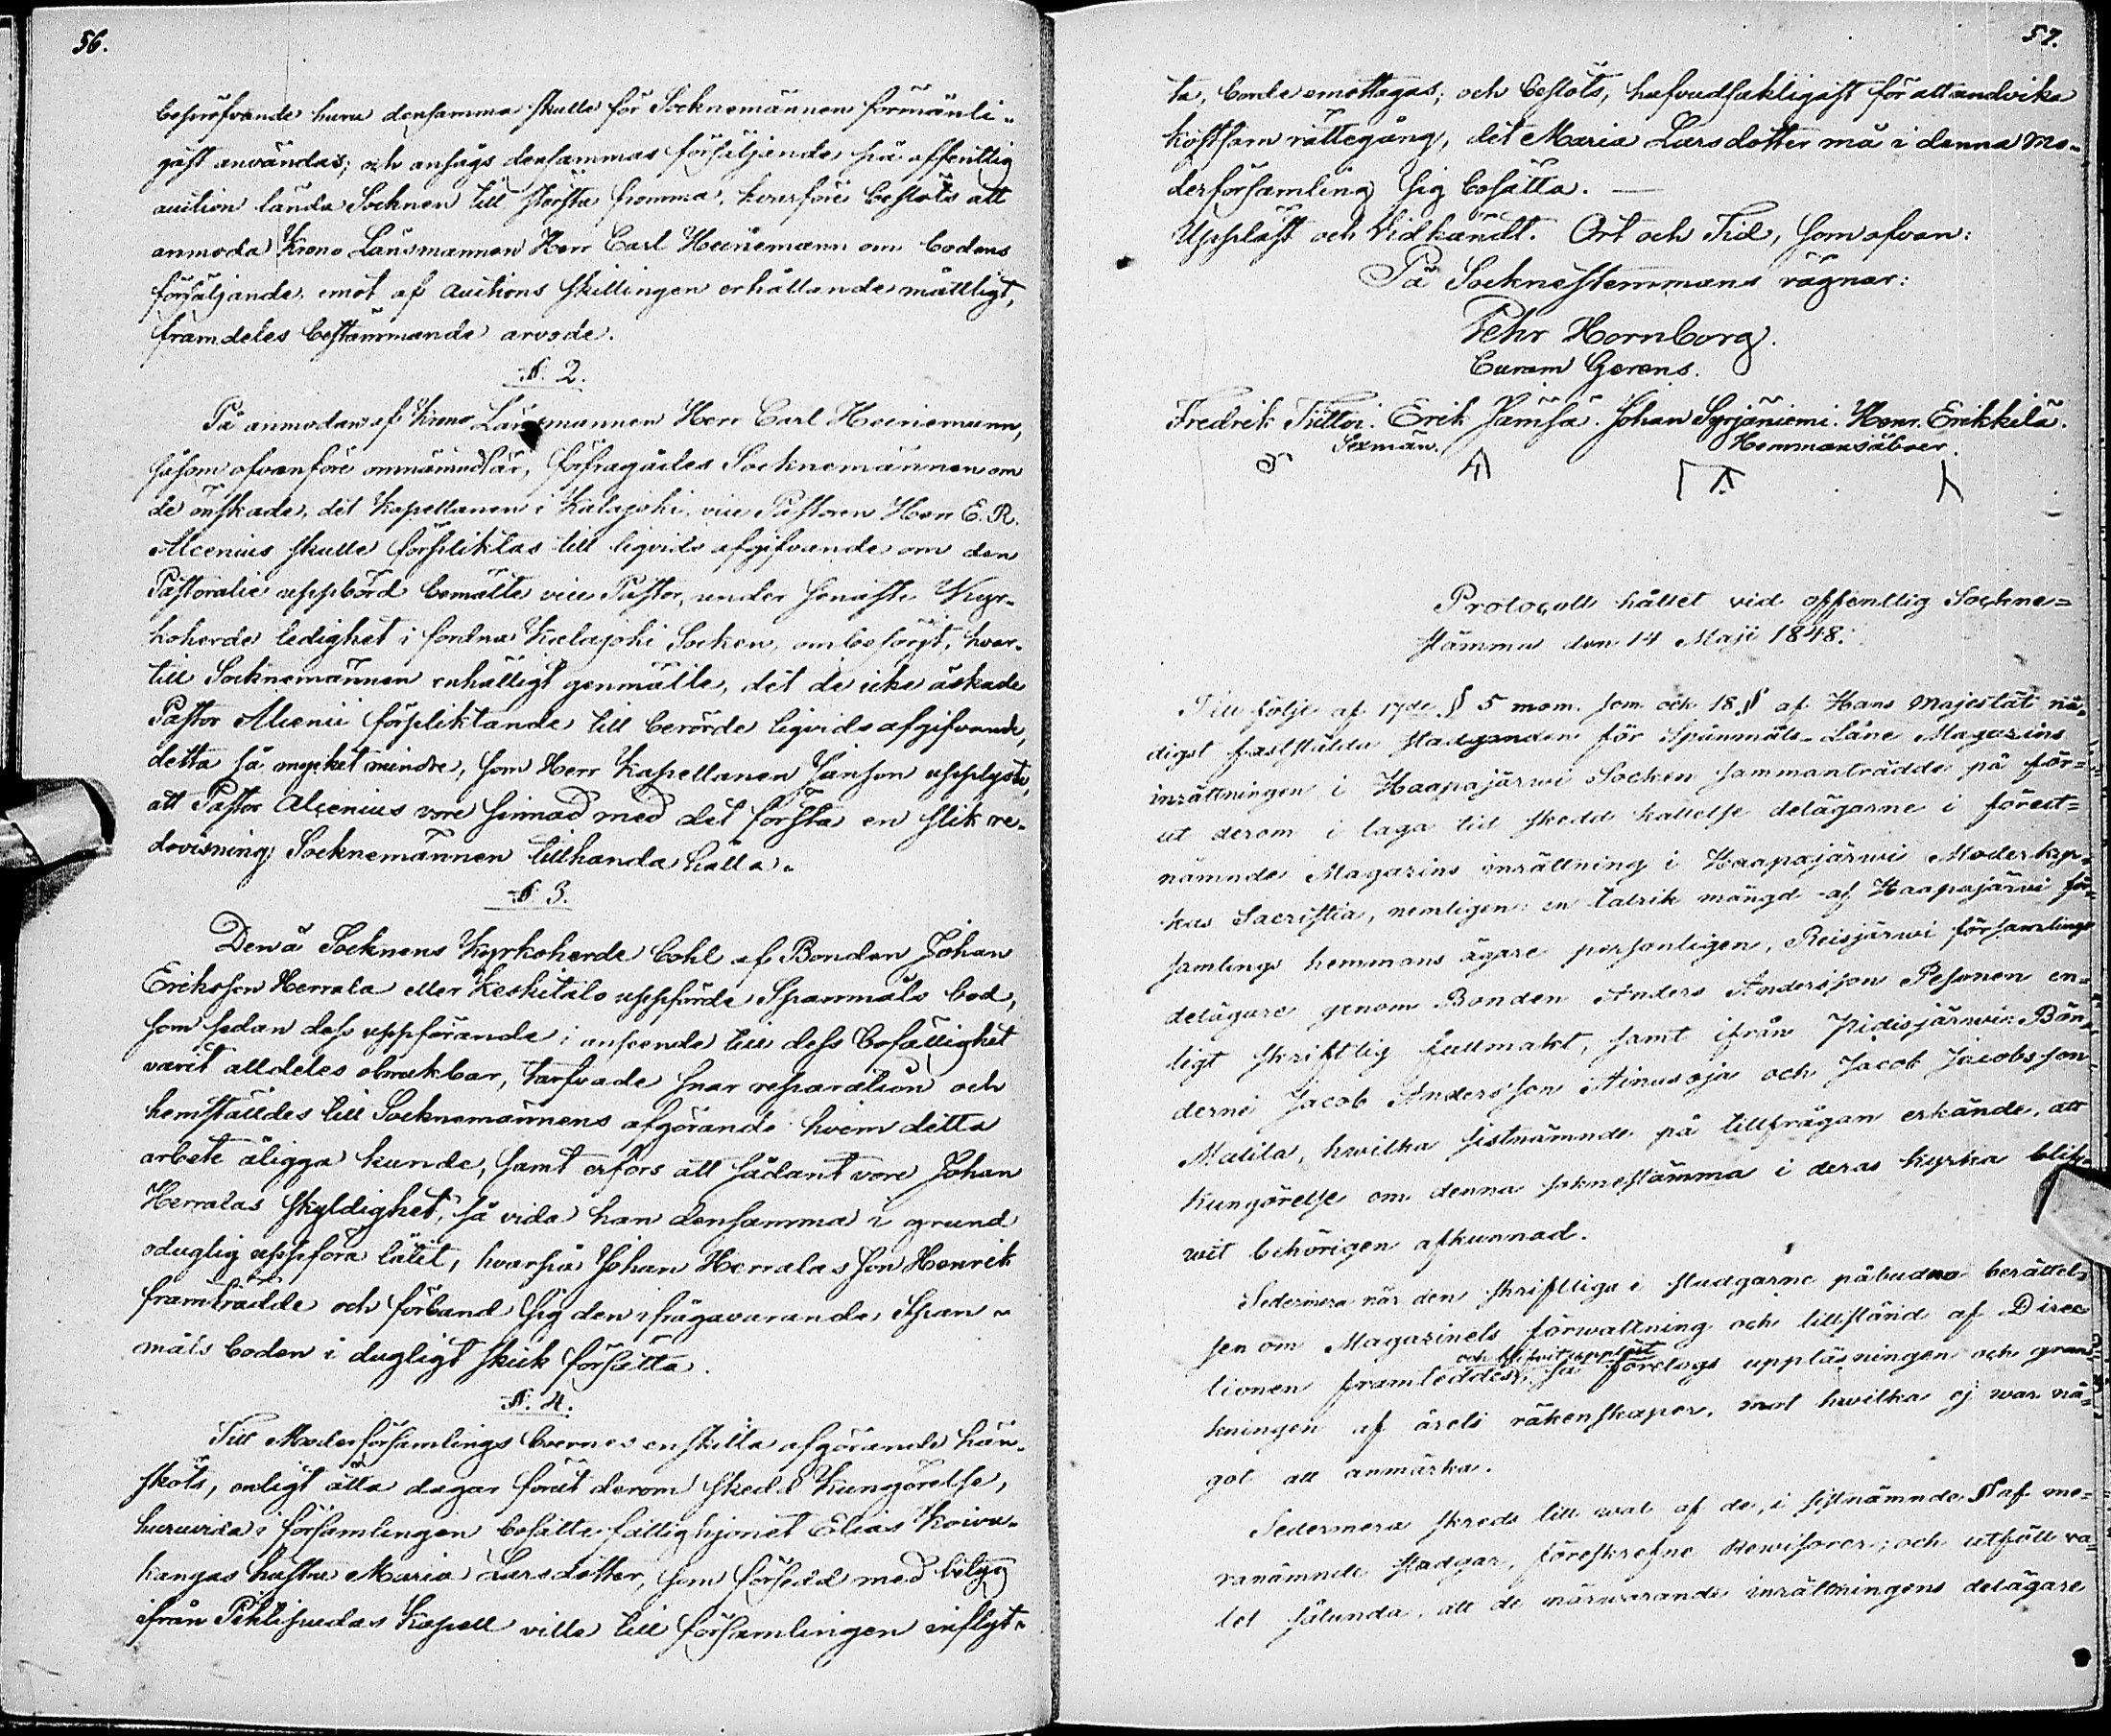 56.
bepröfvande huru densamma skulle för Socknemännen förmånli-
gast användas; och ansågs densammas försäljande på offentlig
auction lända Socknen till största fromma, hvarföre beslöts att
anmoda Krono Länsmannen Herr Carl Heinemann om bodens
försäljande, emot af auctions skillingen erhållande måttligt,
framdeles bestämmande arvode.
§. 2.
På anmodan af Krono Länsmannen Herr Carl Heinemann,
såsom ofvanföre omnämndt är, förfrågades Socknemännen om
de önskade, det Kapellanen i Kalajoki, vice Pastoren Herr E. R.
Alcenius skulle förpliktas till liqvids afgifvande om den
Pastoralie uppbörd bemälte vice Pastor, under senaste Kyr-
koherde ledighet i fordna Kalajoki Socken, ombesörgt, hvar-
till Socknemännen enhälligt genmälte, det de icke äskade
Pastor Alcenii förpliktande till berörde liqvids afgifvande,
detta så mycket mindre, som Herr Kapellanen Janson upplyste,
att Pastor Alcenius vore sinnad med det första en slik re-
dovisning Socknemännen tillhanda hålla.
§. 3.
Den å Socknens Kyrkoherde bohl af Bonden Johan
Eriksson Herrala eller Keskitalo uppförda Spanmåls bod,
som sedan dess uppförande i anseende till dess bofällighet
varit alldeles obrukbar, tarfvade snar reparation och
hemställdes till Socknemännens afgörande hvem detta
arbete åligga kunde, samt erfors att sådant vore Johan
Herralas skyldighet, så vida han densamma i grund
oduglig uppföra låtit, hvarpå Johan Herralas son Henrik
framträdde och förband sig den ifrågavarande Span-
måls boden i dugligt skick försätta.
§. 4.
Till Moderförsamlings boernes enskilta afgörande hän-
sköts, enligt åtta dagar förut derom skedd Kungörelse,
huruvida i församlingen besatte fattighjonet Elias Koivu-
kangas hustru Maria Larsdotter, som försedd med betyg
ifrån Pihtipudas Kapell ville till församlingen inflyt-
57.
ta, borde emottagas; och beslöts, hufvudsakligast för att undvika
kostsam rättegång, det Maria Larsdotter må i denna Mo-
derförsamling sig bosätta. —
Uppläst och Vidkändt. Ort och Tid, som ofvan:
På Socknestemmans vägnar:
Pehr Hornborg.
Curam Gerens.
Fredrik Tuttoi. Erik Jämsä. Johan Syrjäniemi. Henr. Erikkilä.
Sexmän. Hemmansåboer.
Protocoll hållet vid offentlig Sockne=
stämma den 14 Maji 1848.
Till följe af 17de § 5 mom. som och 18 § af Hans Majestät nå-
digst fastställda stadganden för Spanmåls-Låne Magazins
inrättningen i Haapajärwi Socken sammanträdde på för=
ut derom i laga tid skedd kallelse delägarne i förut=
nämnde Magazins inrättning i Haapajärwi Moderkyr-
kas Sacristia, nemligen: en talrik mängd af Haapajärwi för=
samlings hemmans ägare personligen, Reisjärwi församlings
delägare genom Bonden Anders Andersson Pesonen en=
ligt skriftlig fullmakt, samt ifrån Pidisjärwi: Bön=
derne Jacob Andersson Ainasoja och Jacob Jacobsson
Matila, hwilka sistnämnde på tillfrågan erkände, att
Kungörelse om denna soknestämma i deras kyrka blif-
wit behörigen afkunnad.
Sedermera när den skriftliga i stadgarne påbudna berättel=
sen om Magazinets förwaltning och tillstånd af Direc
tionen framleddes, och blifvit uppläst så företogs uppläsningen och grans
kningen af årets räkenskaper, mot hwilka ej war nå=
got att anmärka.
Sedermera skreds till wal af de, i sistnämnda § af me=
ranämnde stadgar, föreskrefne Rewisorer; och utföll va=
let sålunda, att de närwarande inrättningens delägare